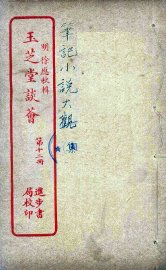 筆記小說大觀
集
明 徐應秋輯
玉芝堂談薈
第十三册
進步書
局校印